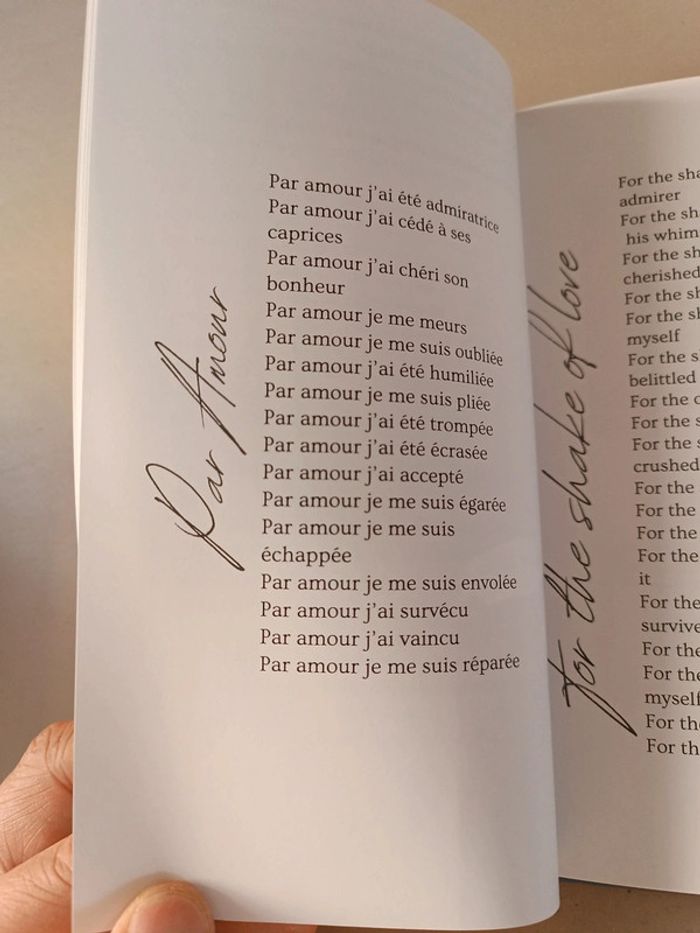 Par Amour
Par amour j'ai été admiratrice
Par amour j'ai cédé à ses
caprices
Par amour j'ai chéri son
bonheur
Par amour je me meurs
Par amour je me suis oubliée
Par amour j'ai été humiliée
Par amour je me suis pliée
Par amour j'ai été trompée
Par amour j'ai été écrasée
Par amour j'ai accepté
Par amour je me suis égarée
Par amour je me suis
échappée
Par amour je me suis envolée
Par amour j'ai survécu
Par amour j'ai vaincu
Par amour je me suis réparée
for the shake of love
For the
admirer
For the
his
For the
cherished
For the
For the
myself
For the
belittled
For the
For the
For the
crushed
For the
For the
For the
For the
it
For the
For the
For the